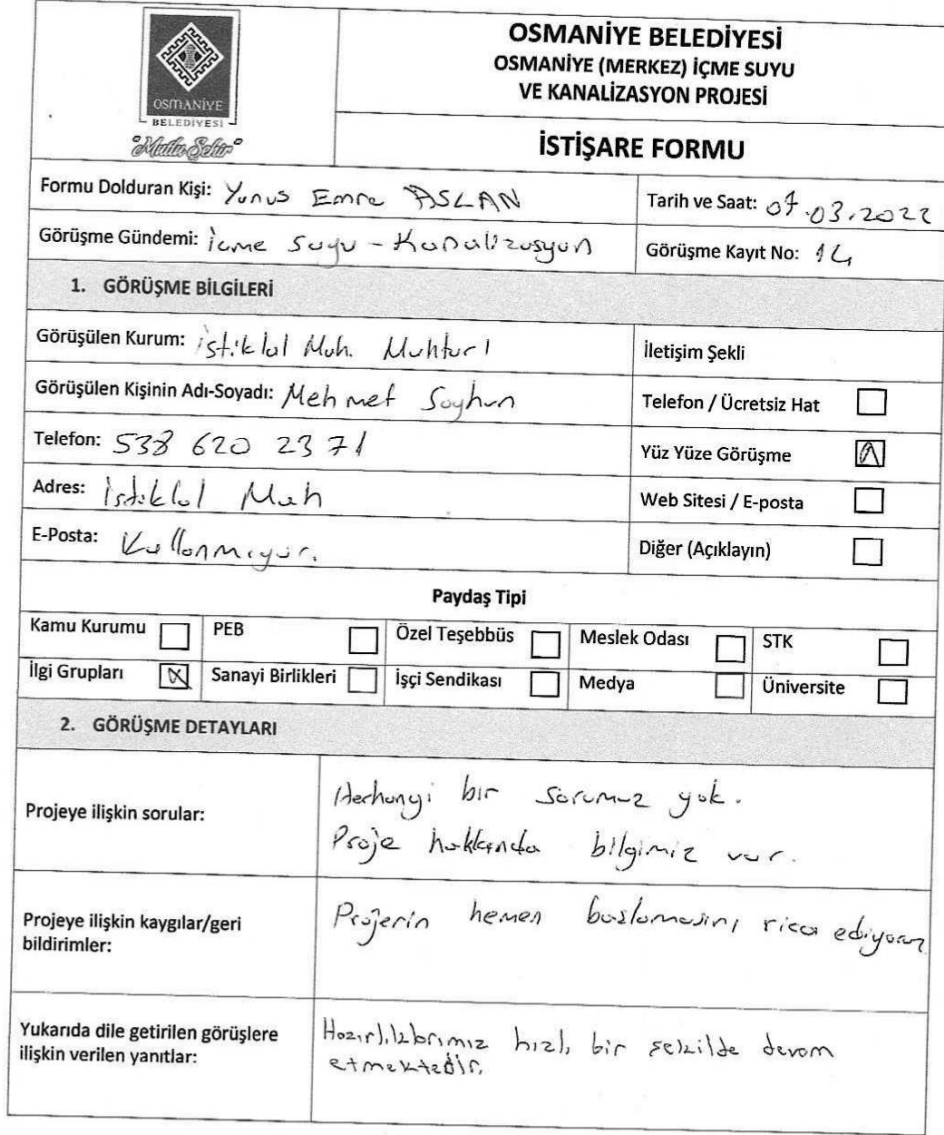 OSMANİYE
BELEDİYESİ
"Mutlu Şehir"
OSMANİYE BELEDİYESİ
OSMANİYE (MERKEZ) İÇME SUYU
VE KANALİZASYON PROJESİ
İSTİŞARE FORMU
Formu Dolduran Kişi: Yunus Emre ASLAN
Tarih ve Saat: 07.03.2022
Görüşme Gündemi: içme suyu - Kanalizasyon
Görüşme Kayıt No: 14
1. GÖRÜŞME BİLGİLERİ
Görüşülen Kurum: istiklal Mah. Muhtarı
İletişim Şekli
Görüşülen Kişinin Adı-Soyadı: Mehmet Soyhan
Telefon / Ücretsiz Hat
Telefon: 538 620 23 71
Yüz Yüze Görüşme
Adres: istiklal Mah
Web Sitesi / E-posta
E-Posta: Kullanmıyor.
Diğer (Açıklayın)
Paydaş Tipi
Kamu Kurumu PEB Özel Teşebbüs Meslek Odası STK
İlgi Grupları Sanayi Birlikleri İşçi Sendikası Medya Üniversite
2. GÖRÜŞME DETAYLARI
Projeye ilişkin sorular:
Herhangi bir sorumuz yok.
Proje hakkında bilgimiz var.
Projeye ilişkin kaygılar/geri
bildirimler:
Projenin hemen başlamasını rica ediyoruz
Yukarıda dile getirilen görüşlere
ilişkin verilen yanıtlar:
Hazırlıklarımız hızlı bir şekilde devam
etmektedir.